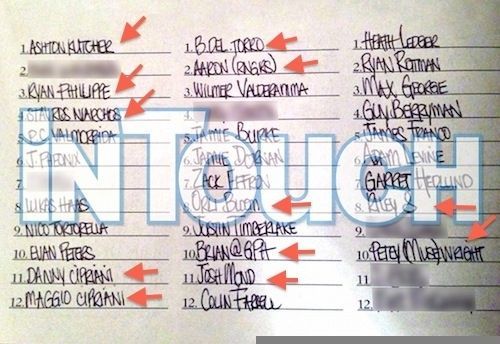 1. ASHTON KUTCHER
2.
3. RYAN PHILLIPE
4. STAVROS NIARCHOS
5. P.C. VALMORBIDA
6. J. PHEONIX
7.
8. LUKAS HAAS
9. NICO TORTORELLA
10. EVAN PETERS
11. DANNY CIPRIANI
12. MAGGIO CIPRIANI
1. B. DEL TORRO
2. AARON (RNGRS)
3. WILMER VALDERAMA
5. JAMIE BURKE
6. JAMIE DORNAN
7. ZACK EFFRON
8. ORLY BLOOM
9. JUSTIN TIMBERLAKE
10. BRIAN @ GPA
11. JOSH MOND
12. COLIN FARRELL
1. HEATH LEDGER
2. RYAN ROTTMAN
3. MAX GEORGE
4. GUY BERRYMAN
5. JAMES FRANCO
6. ADAM LEVINE
7. GARRET HEDLUND
8. RILEY S
9.
10. PETEY (MUSE) WRIGHT
11.
12.
INTOUCH